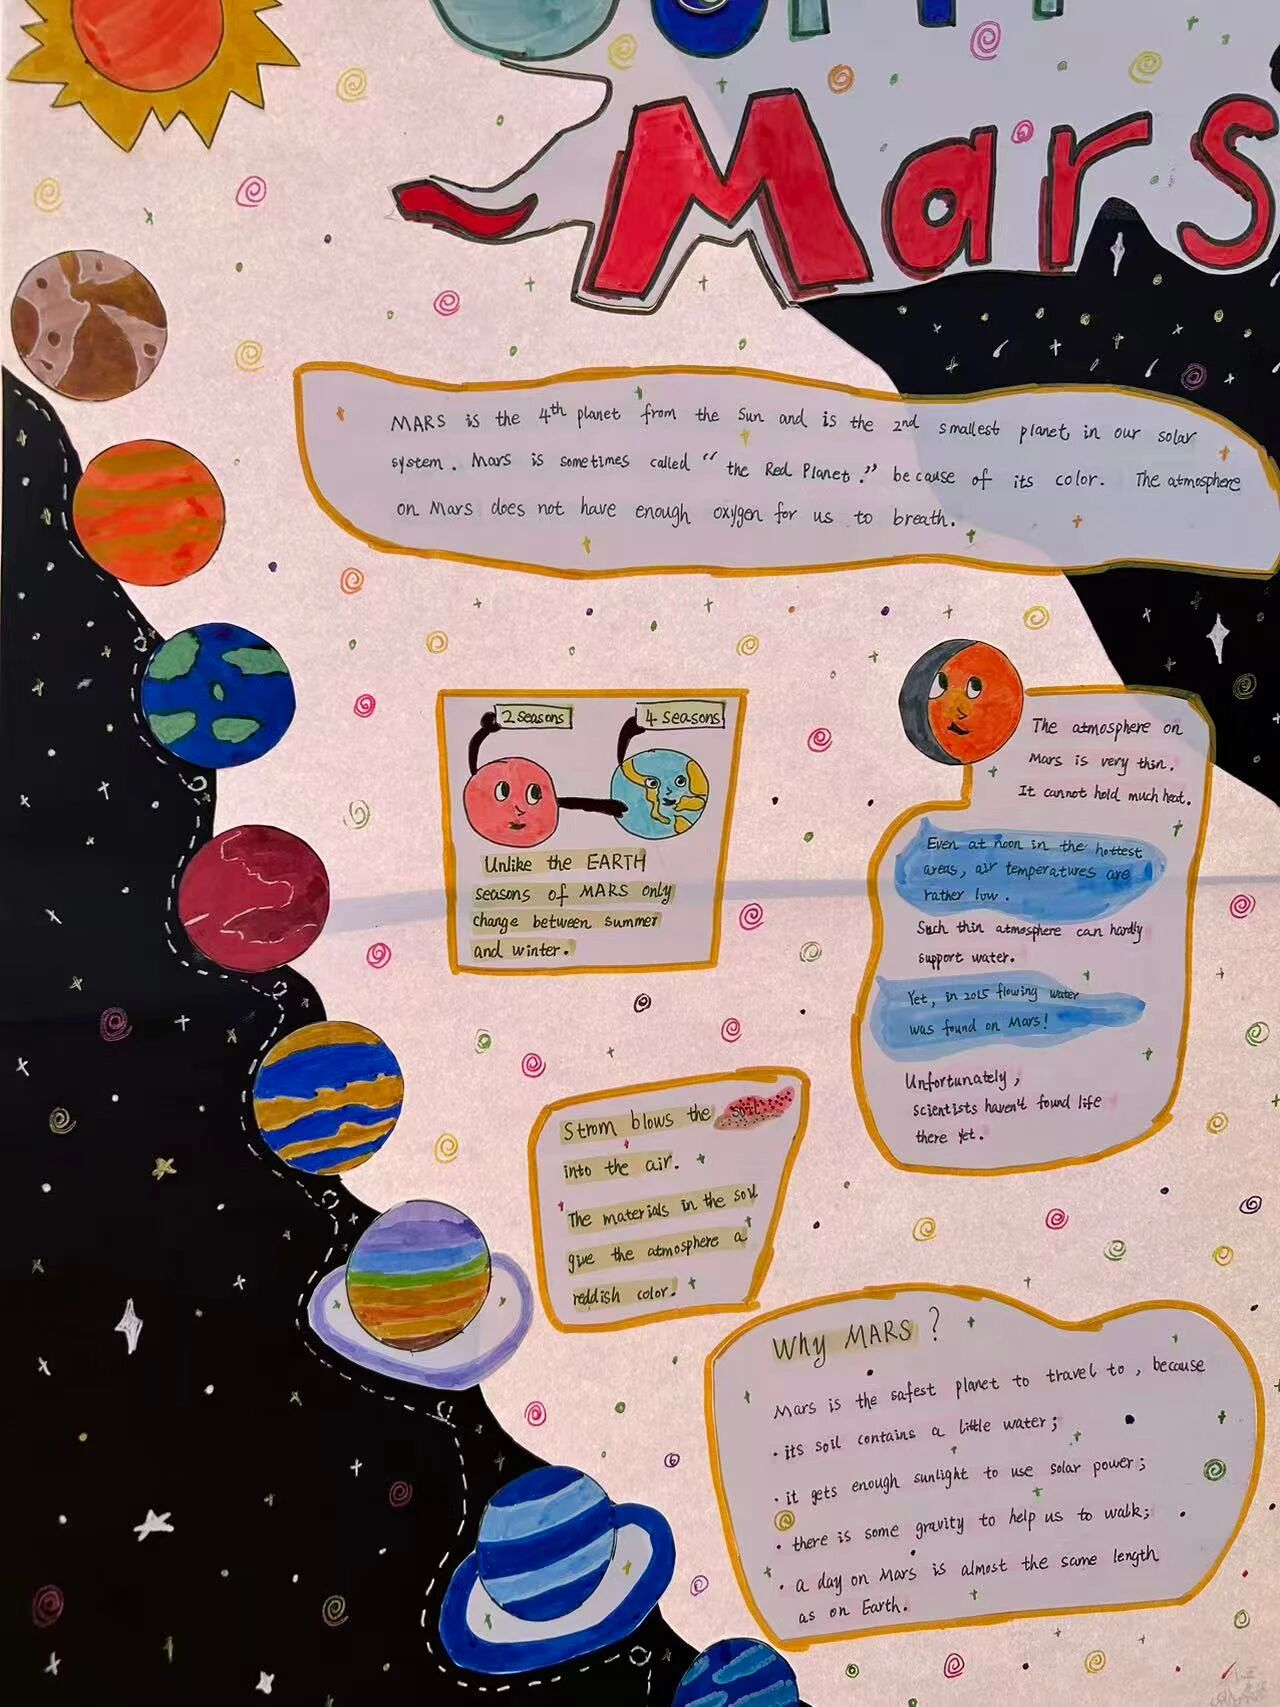 Mars
MARS is the 4th planet from the Sun and is the 2nd smallest planet in our solar
system. Mars is sometimes called “the Red Planet.” because of its color. The atmosphere
on Mars does not have enough oxygen for us to breath.
2 seasons
4 seasons
Unlike the EARTH
seasons of MARS only
change between summer
and winter.
The atmosphere on
Mars is very thin.
It cannot hold much heat.
Even at noon in the hottest
areas, air temperatures are
rather low.
Such thin atmosphere can hardly
support water.
Yet, in 2015 flowing water
was found on Mars!
Unfortunately,
scientists haven't found life
there yet.
Strom blows the soil
into the air.
The materials in the soil
give the atmosphere a
reddish color.
Why MARS?
Mars is the safest planet to travel to, because
· its soil contains a little water;
· it gets enough sunlight to use solar power;
· there is some gravity to help us to walk;
· a day on Mars is almost the same length
as on Earth.